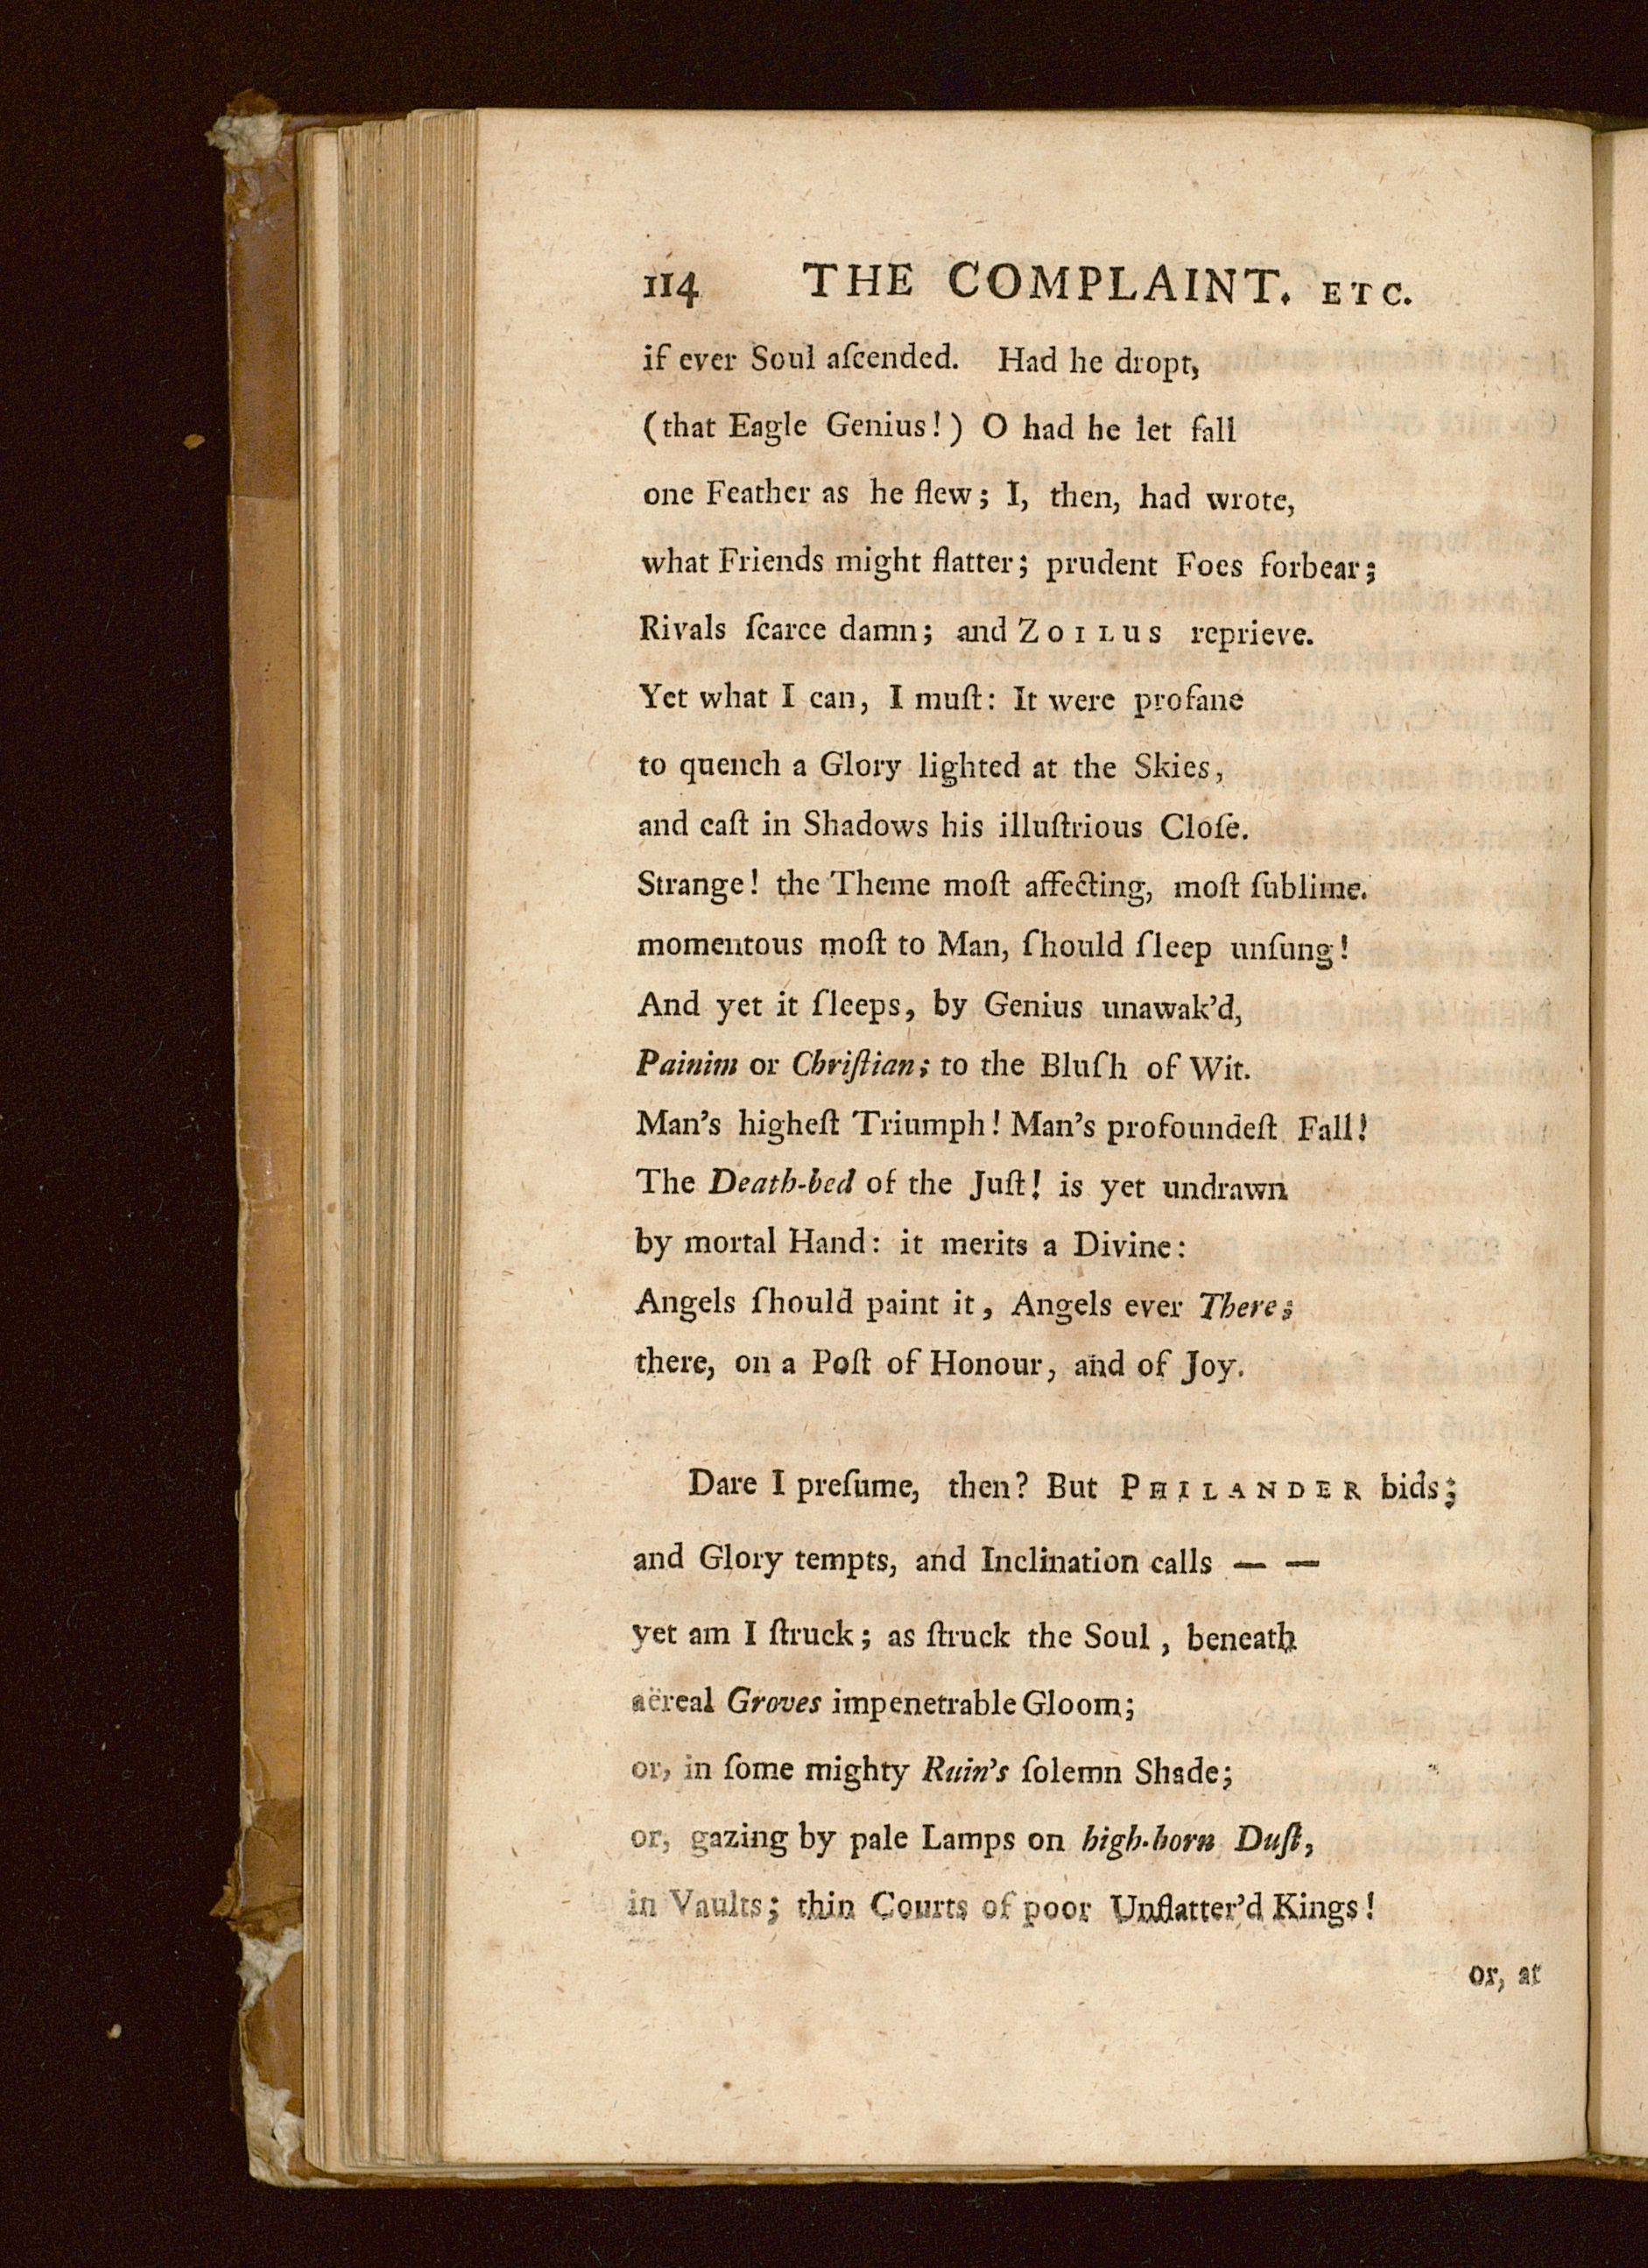 114 THE COMPLAINT. ETC.
if ever Soul aſcended. Had he dropt,
(that Eagle Genius!) O had he let fall
one Feather as he flew; I, then, had wrote,
what Friends might flatter; prudent Foes forbear;
Rivals ſcarce damn; and ZOILUS reprieve.
Yet what I can, I muſt: It were profane
to quench a Glory lighted at the Skies,
and caſt in Shadows his illuſtrious Cloſe.
Strange! the Theme moſt affecting, moſt ſublime.
momentous moſt to Man, ſhould ſleep unſung!
And yet it ſleeps, by Genius unawak'd,
Painim or Chriſtian; to the Bluſh of Wit.
Man's higheſt Triumph! Man's profoundeſt Fall!
The Death-bed of the Juſt! is yet undrawn
by mortal Hand: it merits a Divine:
Angels ſhould paint it, Angels ever There;
there, on a Poſt of Honour, and of Joy.
Dare I preſume, then? But PHILANDER bids;
and Glory tempts, and Inclination calls — —
yet am I ſtruck; as ſtruck the Soul, beneath
aëreal Groves impenetrable Gloom;
or, in ſome mighty Ruin's ſolemn Shade;
or, gazing by pale Lamps on high-born Duſt,
in Vaults; thin Courts of poor Unflatter'd Kings!
or, at